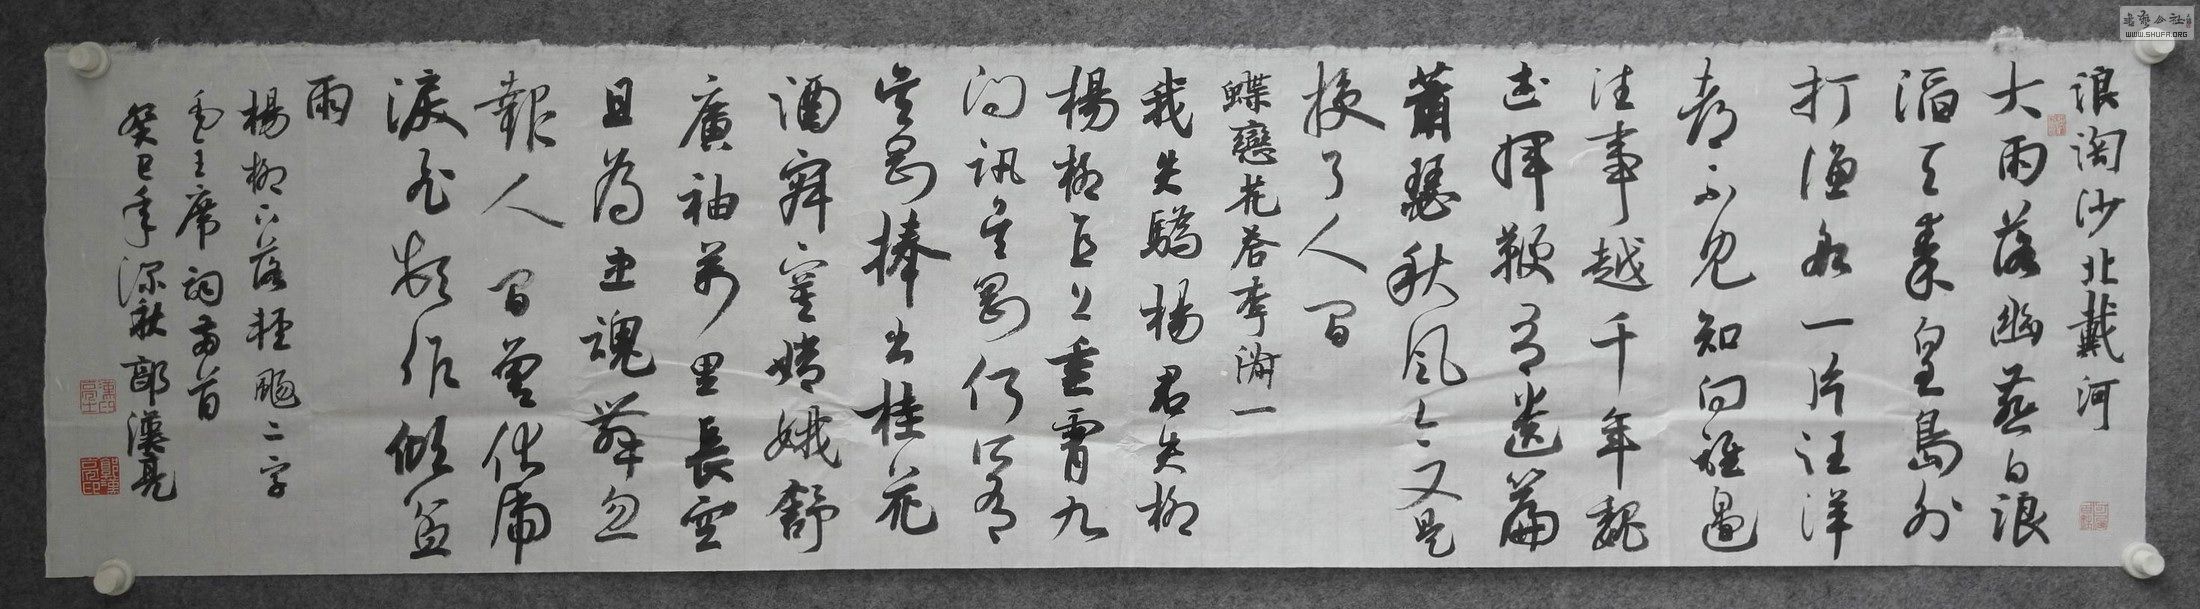 浪淘沙北戴河
大雨落幽燕白浪
滔天秦皇島外
打漁船一片汪洋
都不見知向誰邊
往事越千年魏
武揮鞭有遺篇
蕭瑟秋風今又是
換了人間
蝶戀花答李淑一
我失驕楊君失柳
楊柳直上重霄九
問訊吳剛何所有
吳剛捧出桂花
酒寂寞嫦娥舒
廣袖萬里長空
且為忠魂舞忽
報人間曾伏虎
淚飛頓作傾盆
雨
楊柳下落輕颺二字
毛主席詞兩首
癸巳年深秋郭漢亮
WWW.SHUFA.ORG